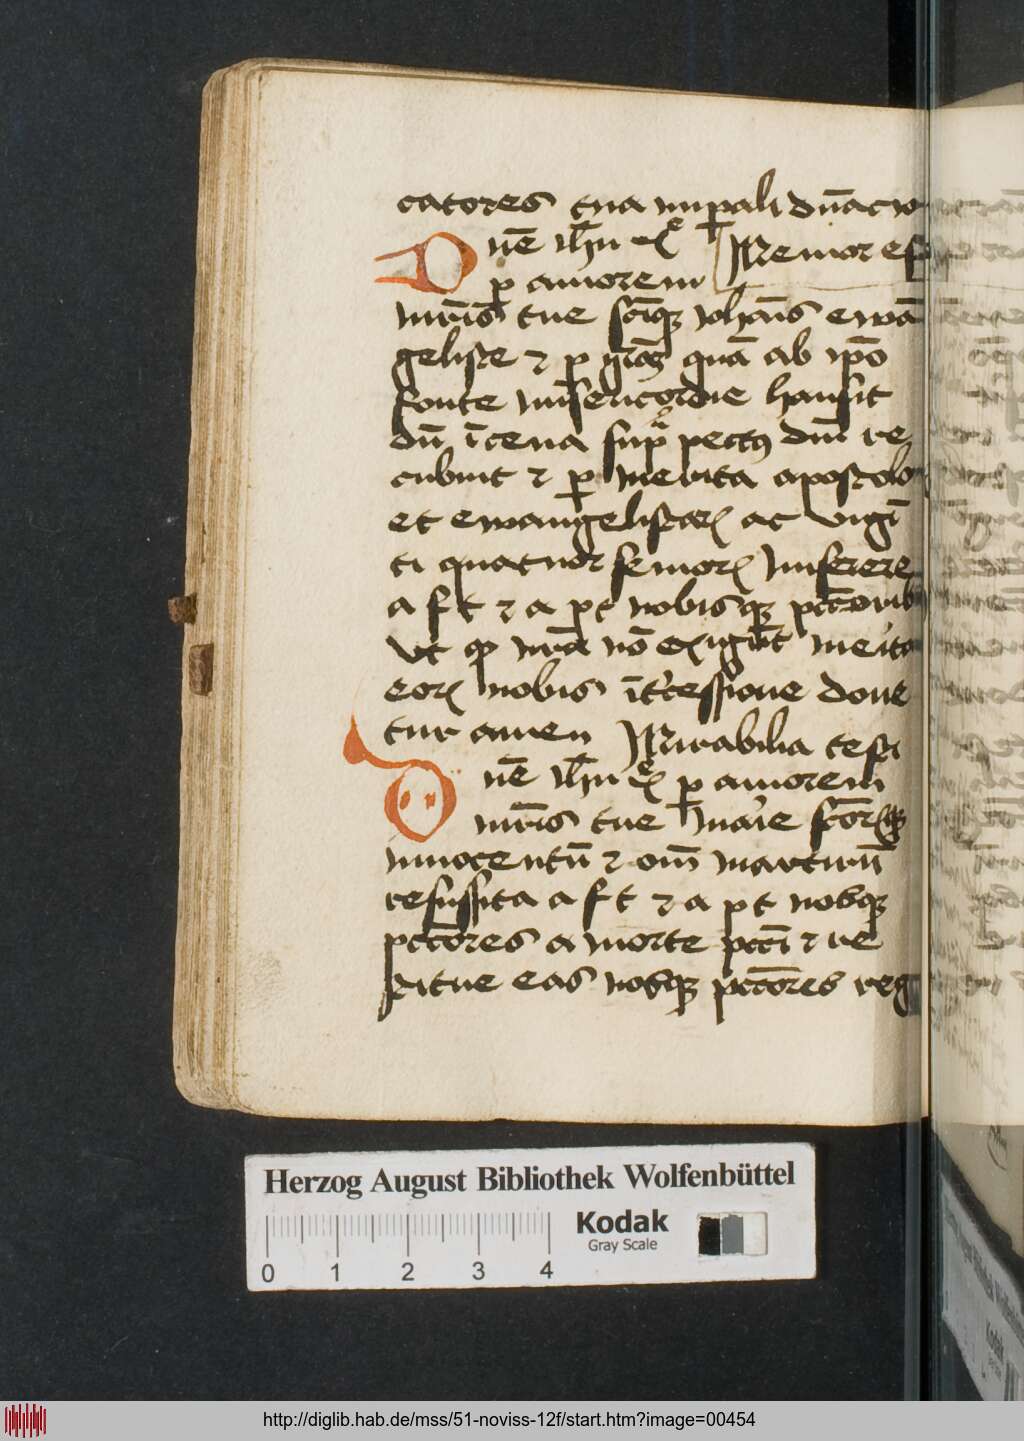 catores tua imp̲ali dn̄acio
Dn̄e ih̄u xp̄e Memor es
p̲ amorem
mr̄is tue sc̄iqꝫ ioh̄ais ewā
geliste ⁊ p̲ quā ab ip̄o
fonte mīsericordie hausit
dū īcena sup̲ pectꝰ dnī re
cubuit ⁊ p̲ merita apostolo
et ewangelistarꝝ ac vigī
ti quatuor seniorꝝ miserere
a f t ⁊ a p t nobisqꝫ pctōrib
vt qd nr̄a nō exigūt merita
eorꝝ nobis īt'cessione done
tur amen Mirabilia testi
Dn̄e ih̄u xp̄e p̲ amorem
mr̄is tue marie sctōrꝝqꝫ
innocentū ⁊ om̄ martirū
resussita a f t ⁊ a p t nobqꝫ
pctōres a morte pcc̄i ⁊ re
stitue eas nosqꝫ pctōres reg
Herzog August Bibliothek Wolfenbüttel
Kodak
Gray Scale
0 1 2 3 4
http://diglib.hab.de/mss/51-noviss-12f/start.htm?image=00454